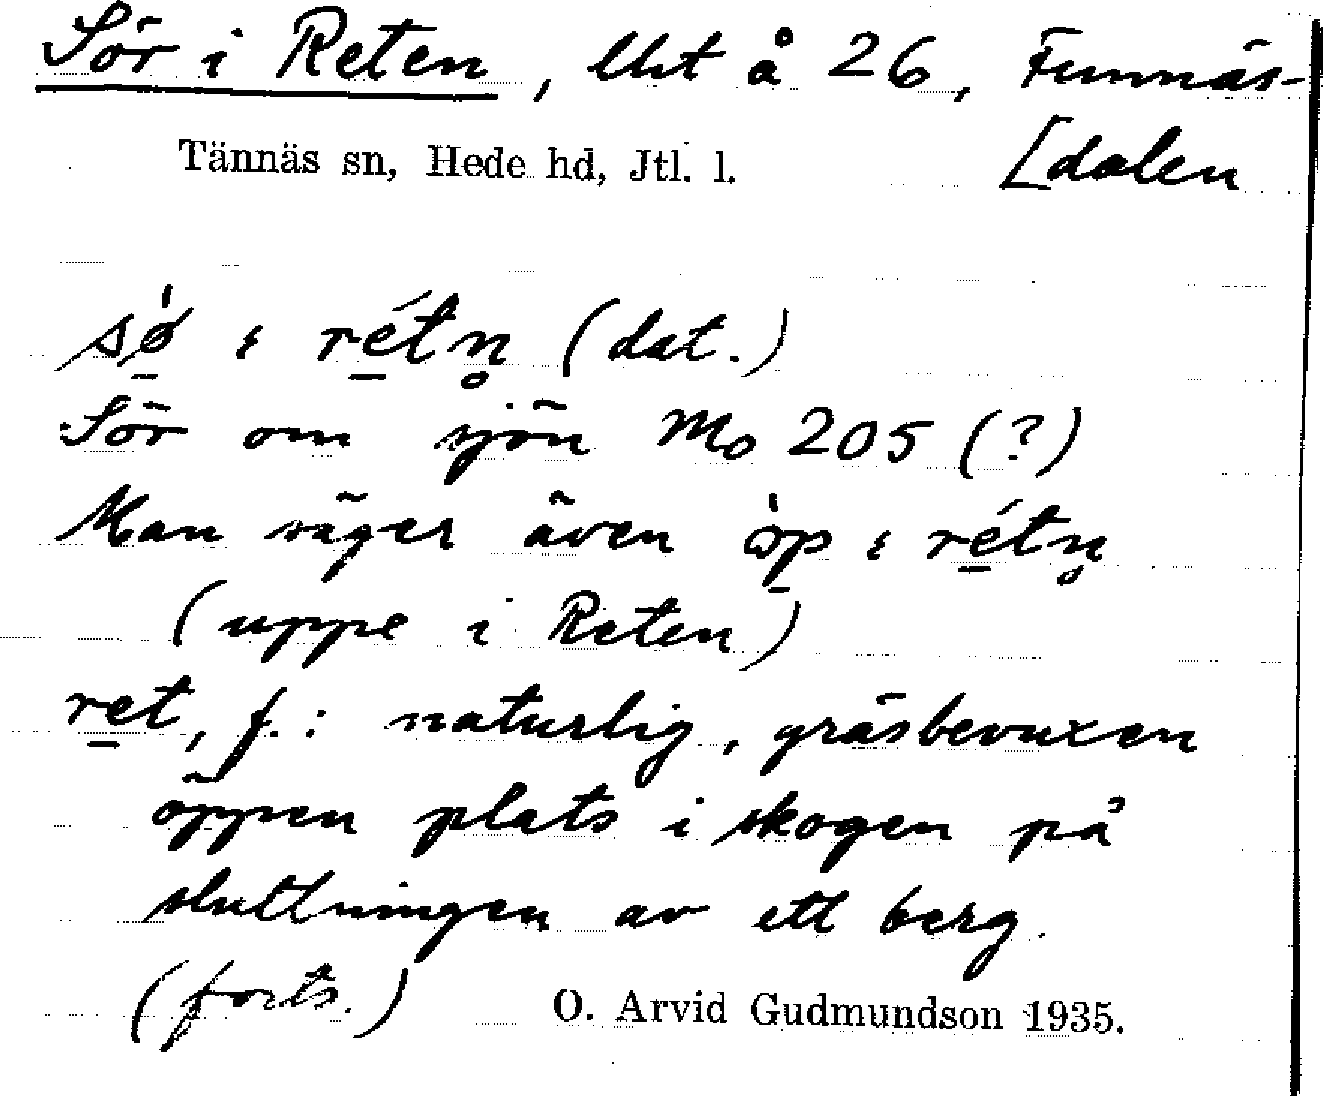 Sör i Reten, lht å 26, Funnäs-
[dalen
Tännäs sn, Hede hd, Jtl. l.
sø̠̀ ɩ ré̠tn̥ (dat.)
Sör om sjön Mo 205 (?)
Man säger även òp ɩ ré̠tn̥
(uppe i Reten)
re̠t, f.: naturlig, gräsbevuxen
öppen plats i skogen på
sluttningen av ett berg.
(forts.) O. Arvid Gudmundson 1935.